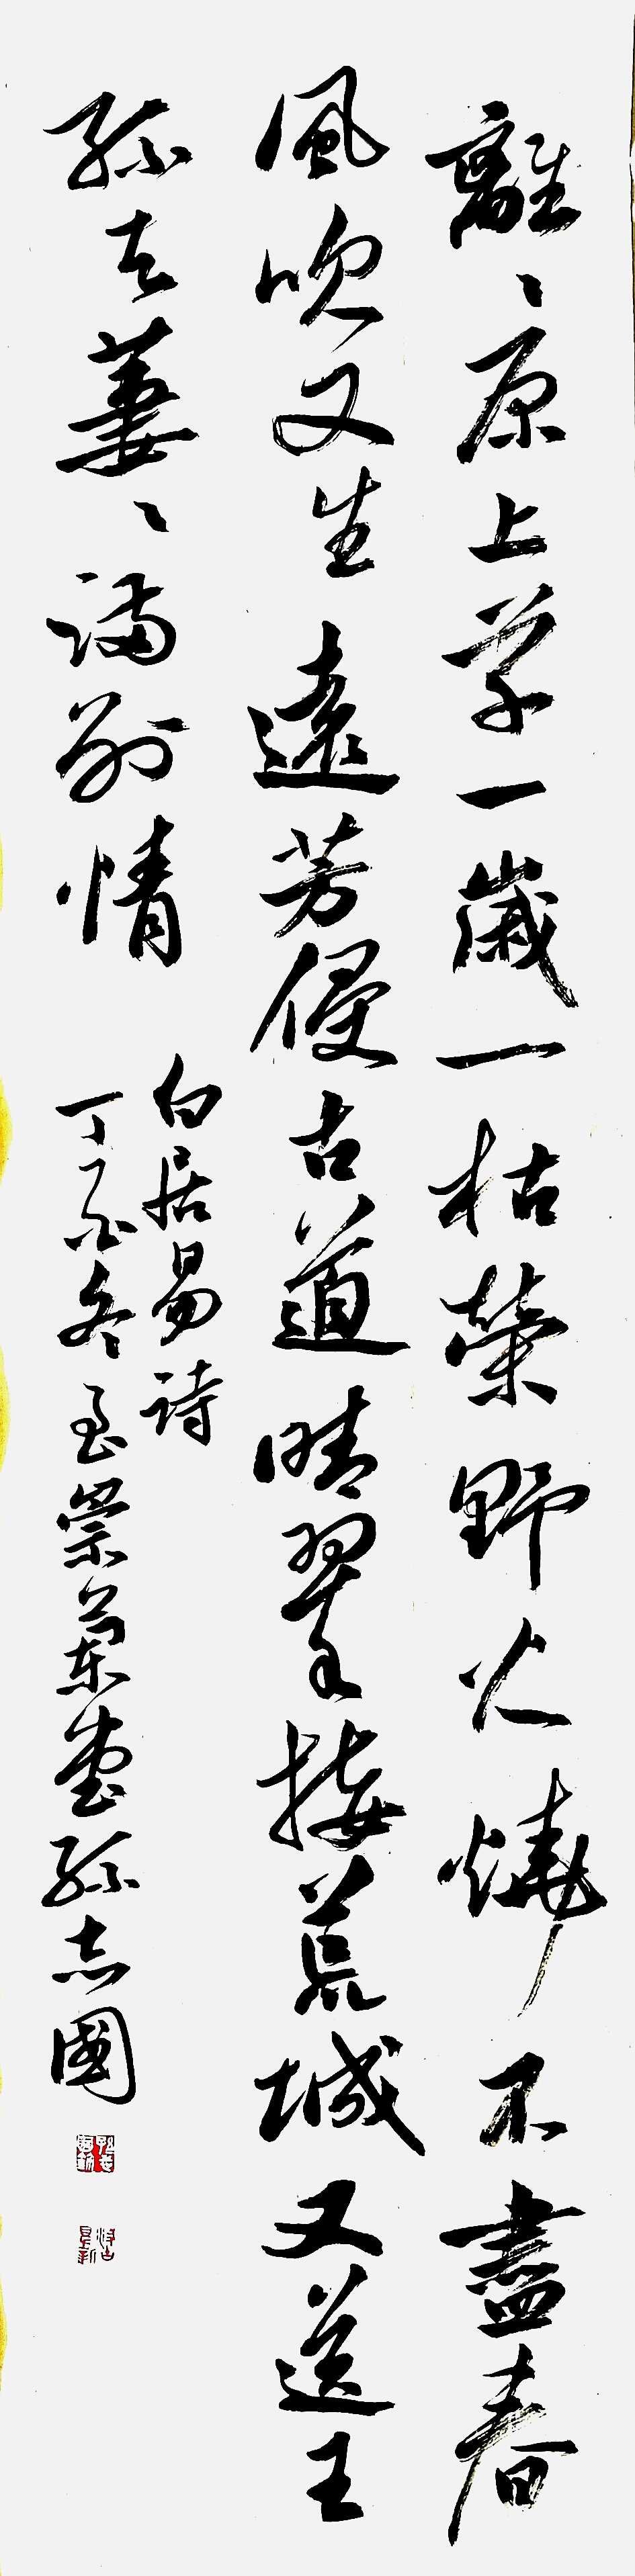 離〻原上草一歲一枯榮野火燒不盡春
風吹又生遠芳侵古道晴翠接荒城又送王
孫去萋〻滿別情
白居易詩
丁酉冬至崇蘭堂孫志國